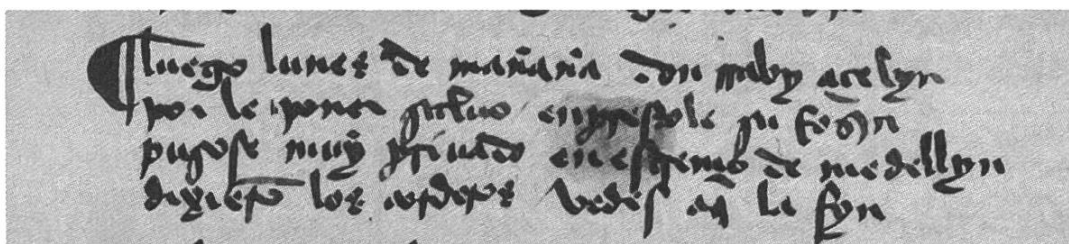 ¶ luego lunes de mañana don rraby açelyn
por le poner saluo enprestole su rroçin
pusose muy priuado en estremo de medellyn
dixierõ los corderos vedes aq̃ la fyn